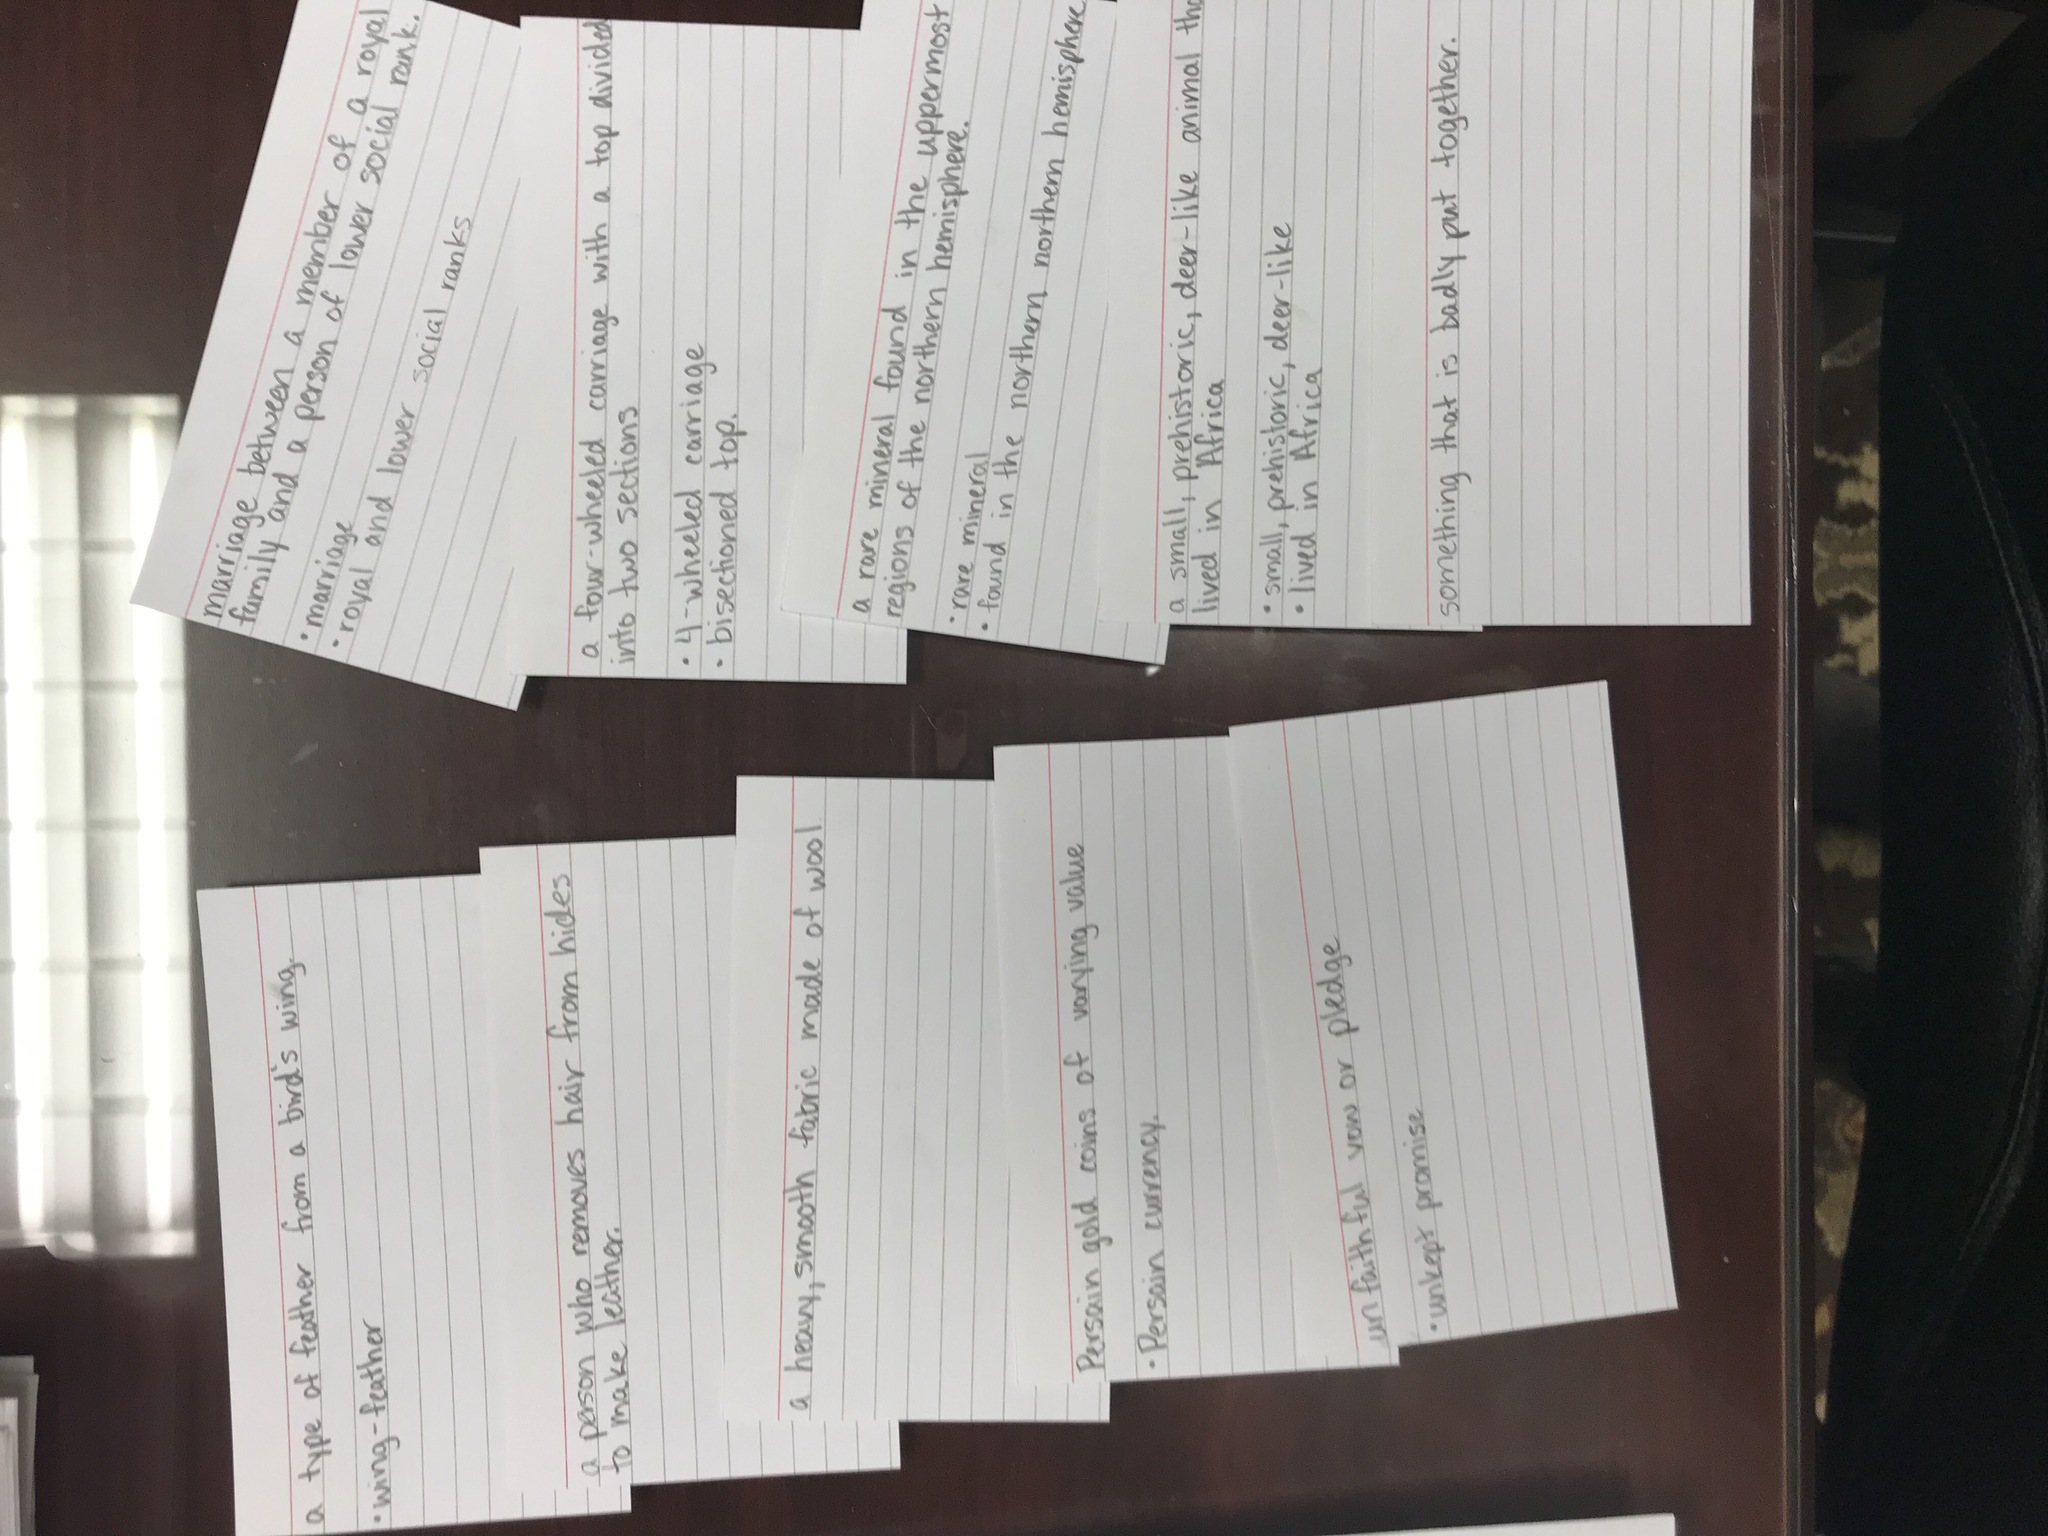 a type of feather from a bird's wing.
• wing-feather
a person who removes hair from hides
to make leather.
a heavy, smooth fabric made of wool.
Persain gold coins of varying value
• Persain currency.
unfaithful vow or pledge
• unkept promise
marriage between a member of a royal
family and a person of lower social rank.
• marriage
• royal and lower social ranks
a four-wheeled carriage with a top divided
into two sections
• 4-wheeled carriage
• bisectioned top.
a rare mineral found in the uppermost
regions of the northern hemisphere.
• rare mineral
• found in the northern northern hemisphere
a small, prehistoric, deer-like animal tha
lived in Africa
• small, prehistoric, deer-like
• lived in Africa
something that is badly put together.